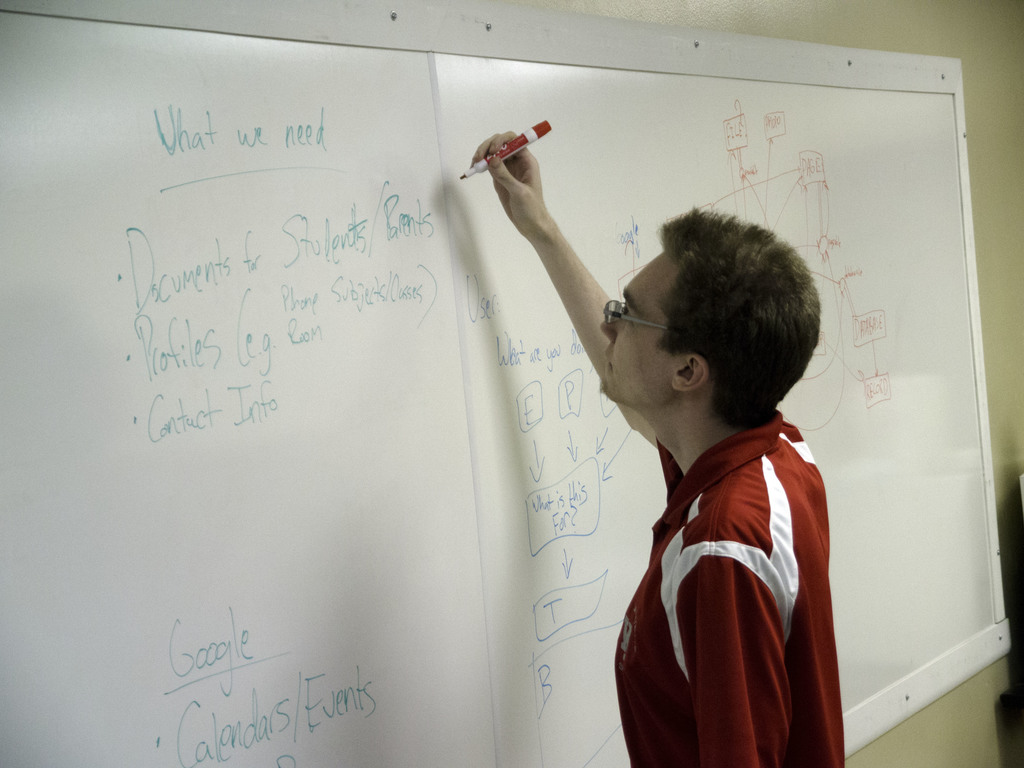 What we need
· Documents for Students/Parents
· Profiles (e.g. Phone Subjects/Classes)
Room
· Contact Info
Google
· Calendars/Events
User:
What are you
E P
What is this
For?
T
B
Google
FILE
PAGE
DATABASE
RECORD